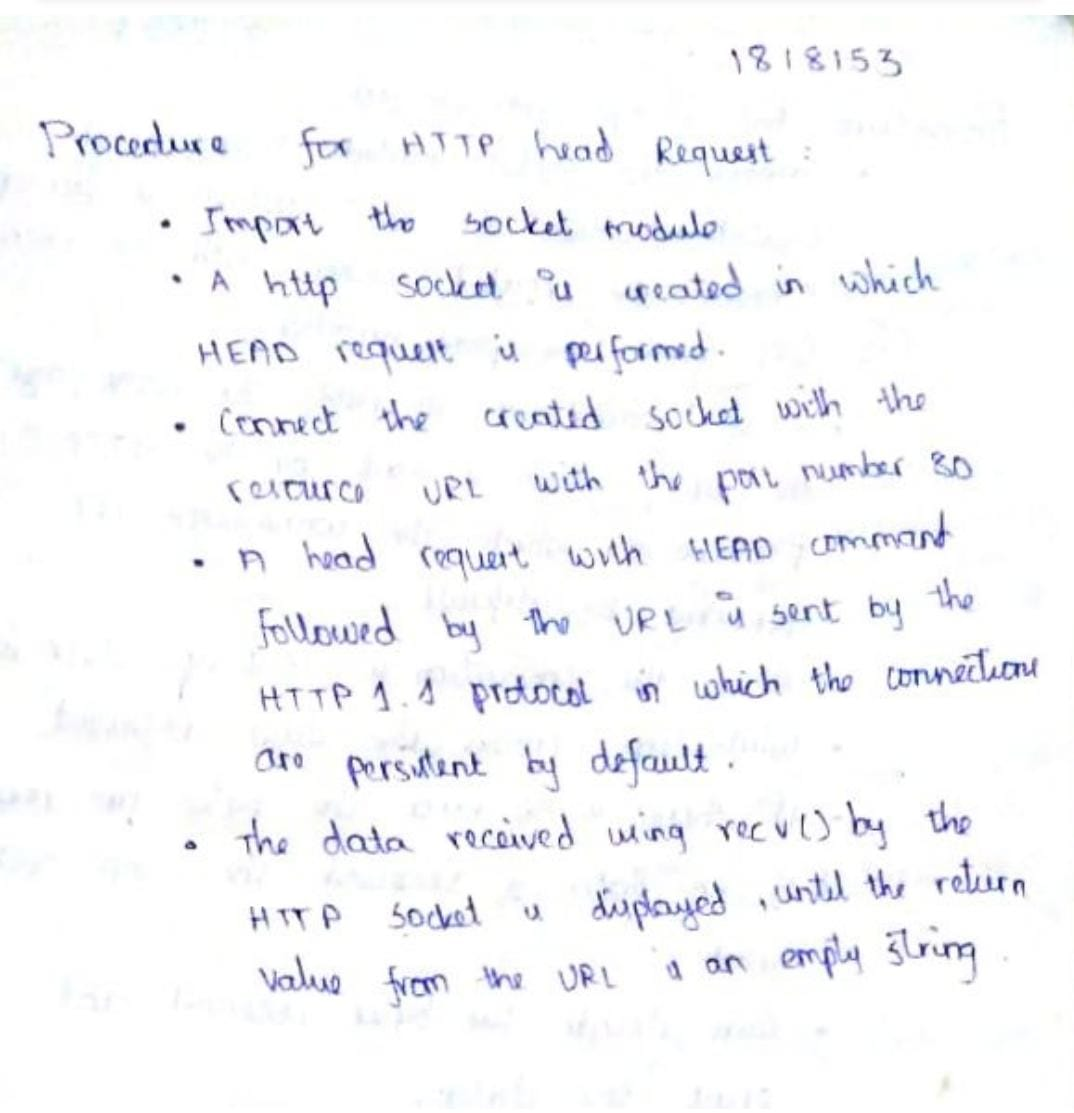 1818153
Procedure for HTTP head Request :
• Import the socket module
• A http socket is created in which
HEAD request is performed.
• Connect the created socket with the
resource URL with the port number 80
• A head request with HEAD command
followed by the URL is sent by the
HTTP 1.1 protocol in which the connections
are persistent by default.
• The data received using recv() by the
HTTP socket is displayed, until the return
value from the URL is an empty string.